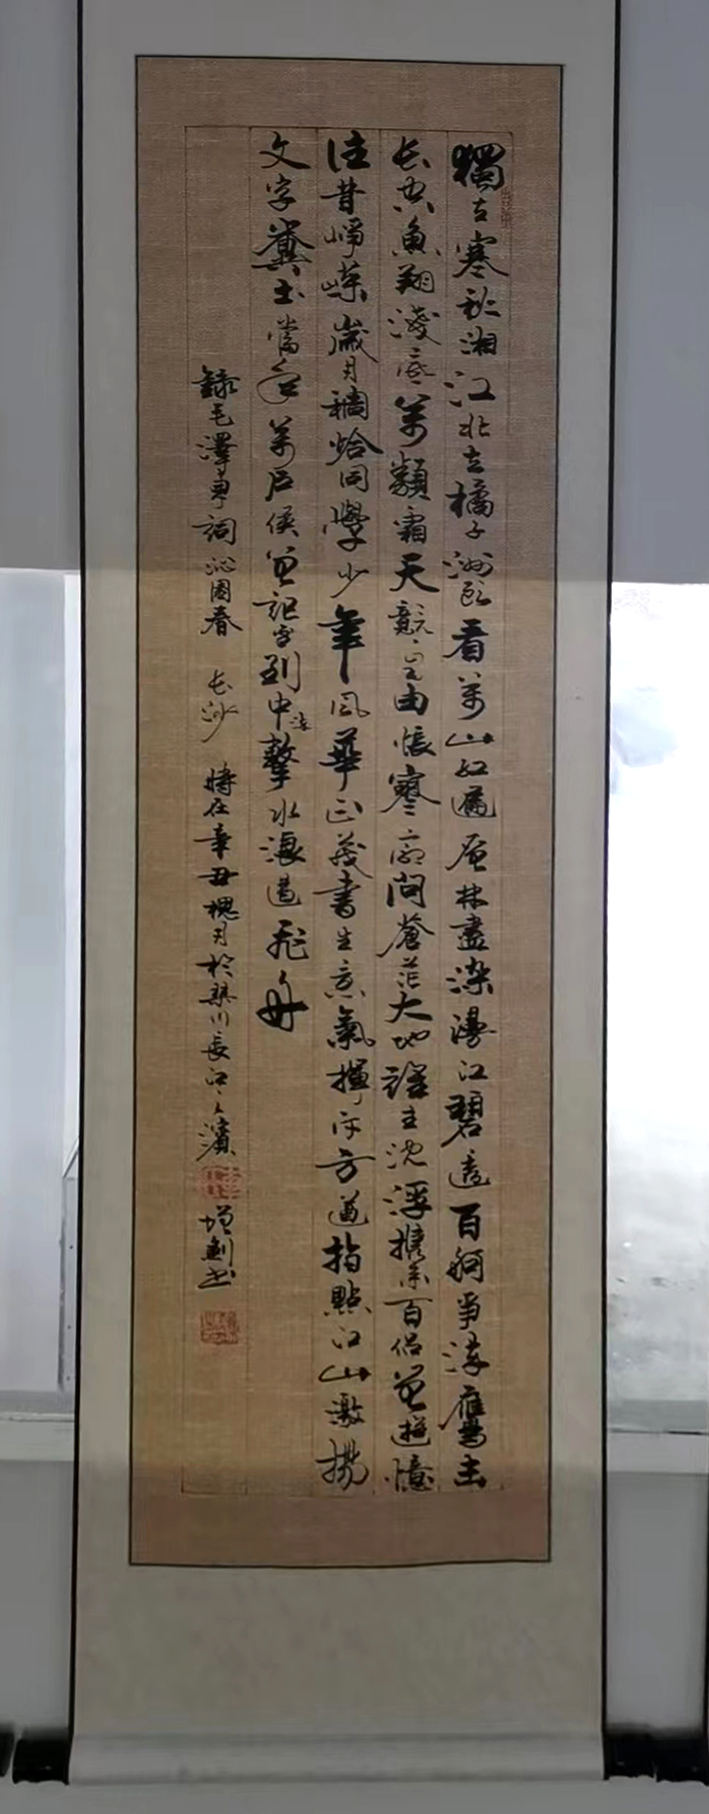 獨立寒秋湘江北去橘子洲頭看萬山紅遍層林盡染漫江碧透百舸爭流鷹击
长空魚翔淺底萬類霜天競自由悵寥廓問蒼茫大地誰主沉浮攜來百侣曾遊憶
往昔崢嶸歲月稠恰同學少年風華正茂書生意氣揮斥方遒指點江山激揚
文字糞土當年萬户侯曾記否到中流擊水浪遏飛舟
錄毛澤東詞沁園春 长沙 時在辛丑槐月於 川長江之濱 增劍书